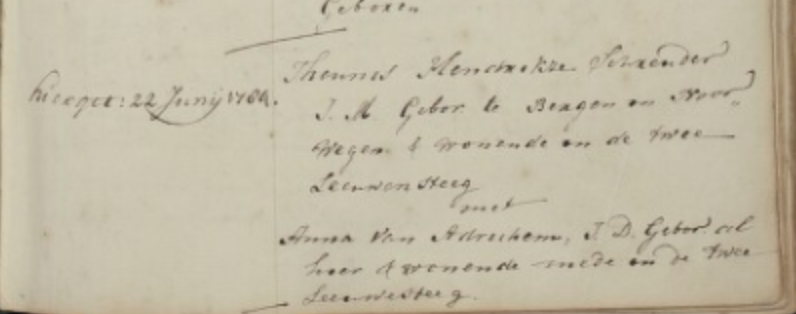 Geboren
hier get: 22 Junij 1784.
Theunis Hendrikze Schreuder
J. M. Gebor. te Bergen in Noor„
wegen & wonende in de twee
Leeuwensteeg
met
Anna van Adrichem, J. D. Gebor. al
hier & wonende mede in de twee
Leeuwesteeg.